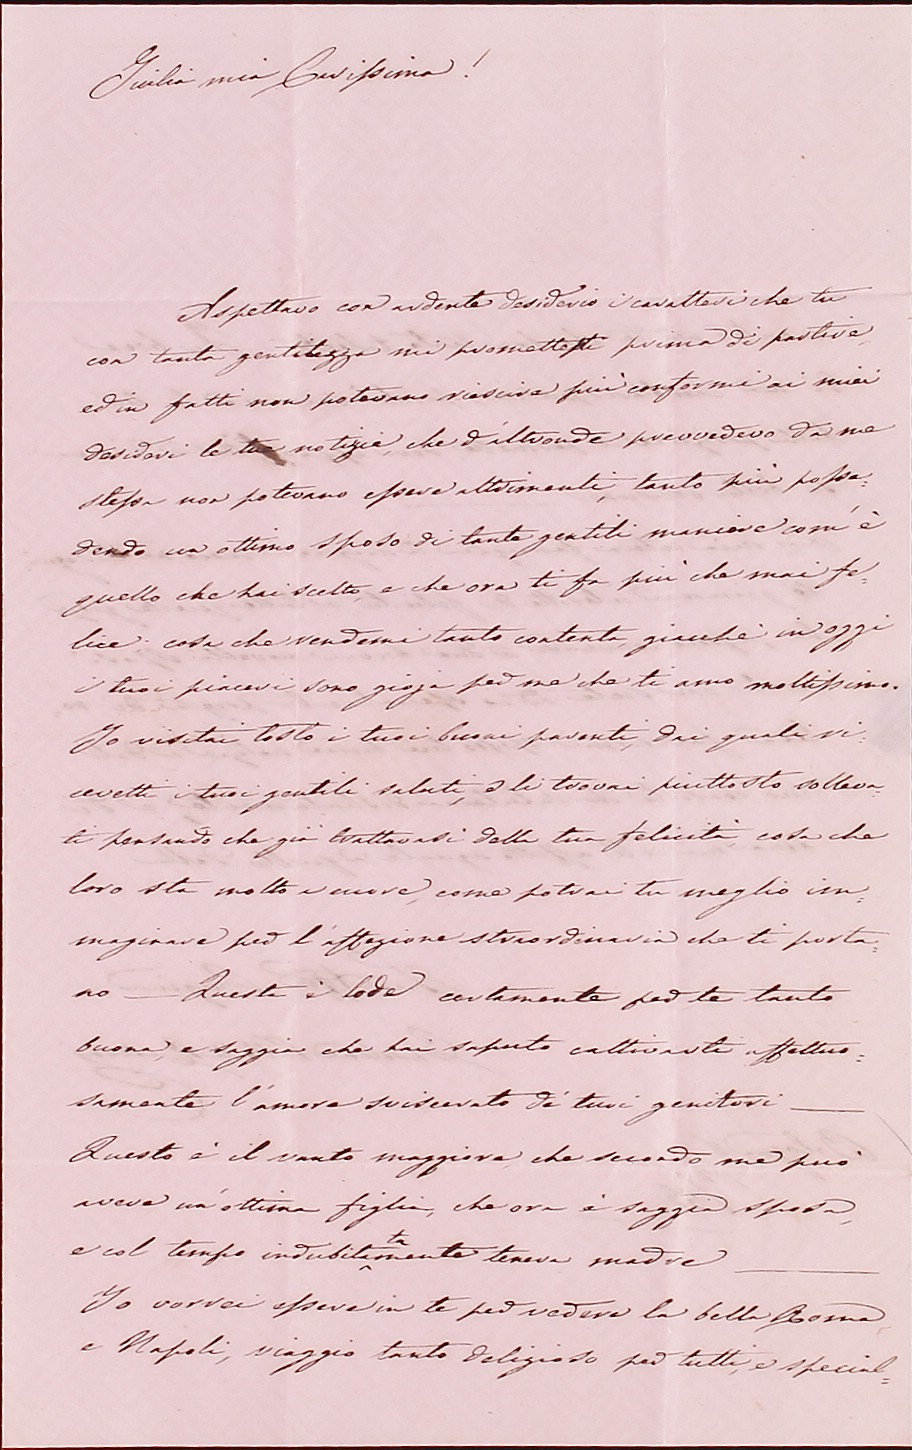 Giulia mia Carissima!
Aspettavo con ardente desiderio i caratteri che tu
con tanta gentilezza mi promettesti prima di partire,
ed in fatti non potevano riescire più conformi ai miei
desideri le tue notizie, che d'altronde prevvedevo da me
stessa non potevano essere altrimenti, tanto più posse=
dendo un ottimo sposo di tante gentili maniere com'è
quello che hai scelto, e che ora ti fa più che mai fe=
lice: cosa che rendemi tanto contenta, giacchè in oggi
i tuoi piaceri sono gioja per me che ti amo moltissimo.
Io visitai tosto i tuoi buoni parenti, dai quali ri=
cevetti i tuoi gentili saluti, e li trovai piuttosto solleva=
ti pensando che già trattavasi della tua felicità, cosa che
loro sta molto a cuore, come potrai tu meglio im=
maginare per l'affezione straordinaria che ti porta=
no — Questa è lode certamente per te tanto
buona, e saggia che hai saputo cattivarti affettuo=
samente l'amore sviscerato de' tuoi genitori —
Questo è il vanto maggiore, che secondo me può
avere un'ottima figlia, che ora è saggia sposa,
e col tempo indubitatamente tenera madre —
Io vorrei essere in te per vedere la bella Roma,
e Napoli, viaggio tanto deligioso per tutti, e special=